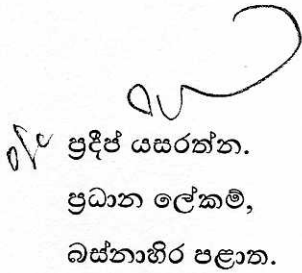 ප්‍රදීප් යසරත්න.
ප්‍රධාන ලේකම්,
බස්නාහිර පළාත.